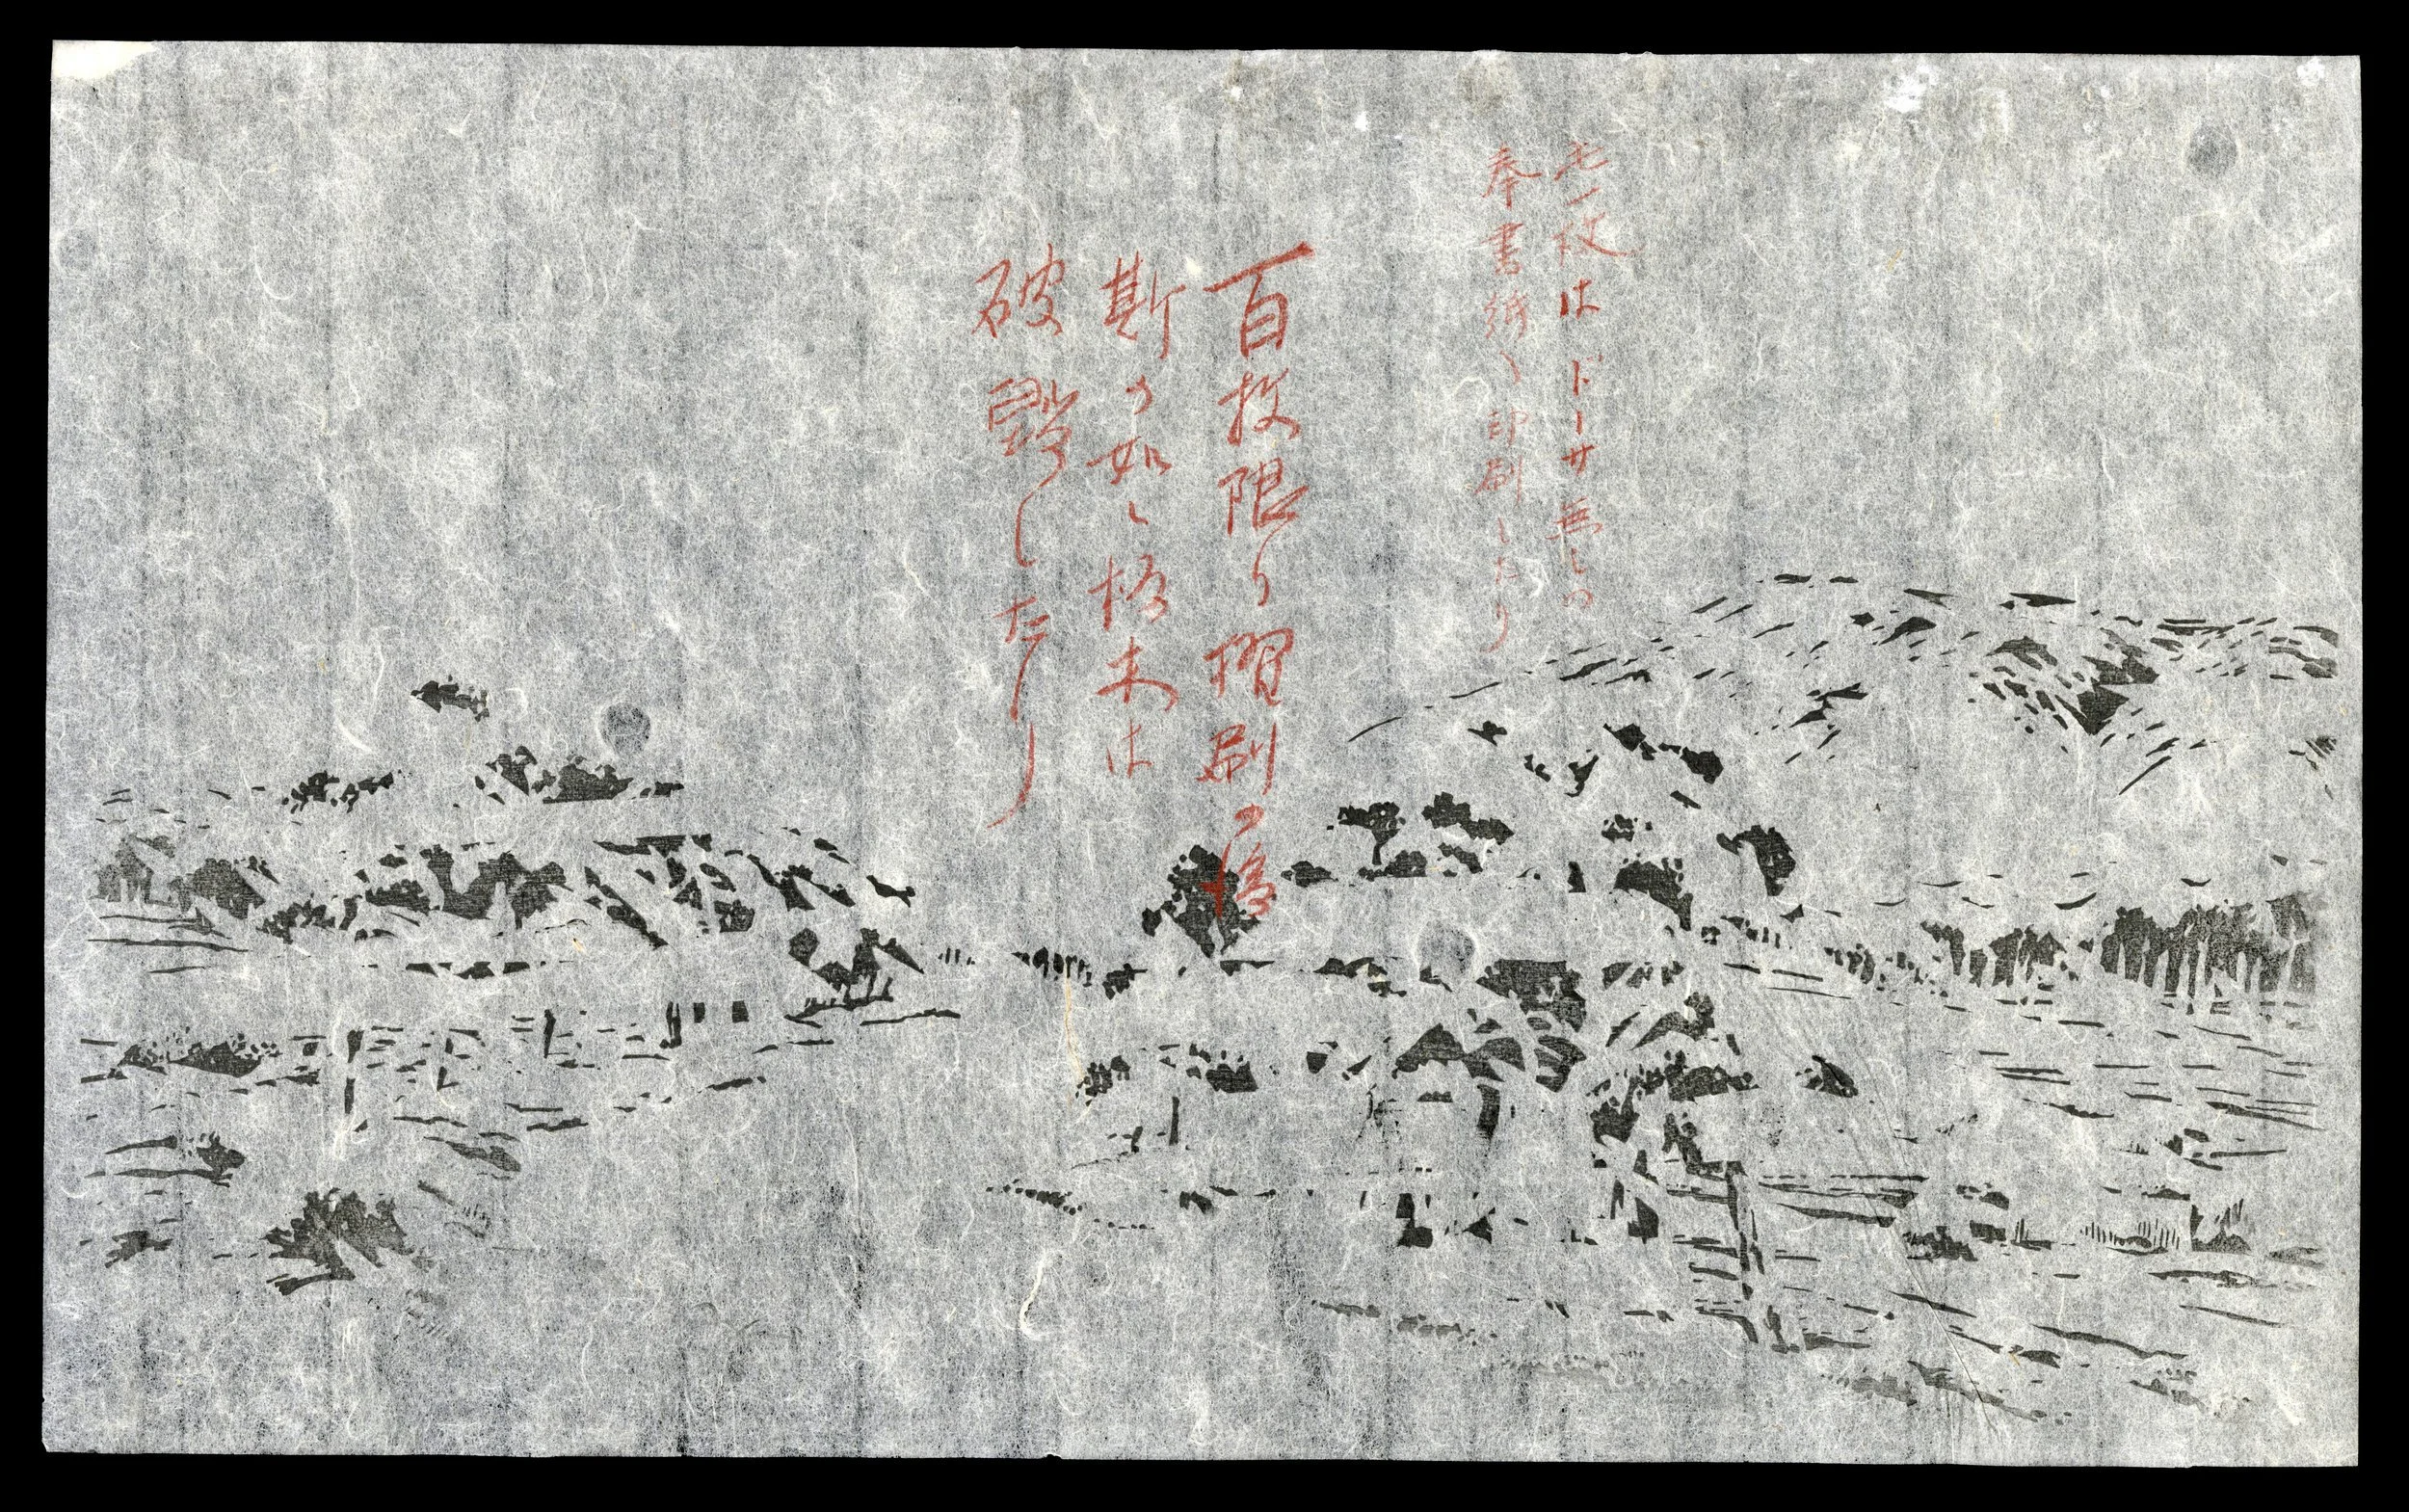 一枚はドーサ無しの
奉書紙へ印刷したり
百枚限り摺刷の後
斯の如く板木は
破毀したり